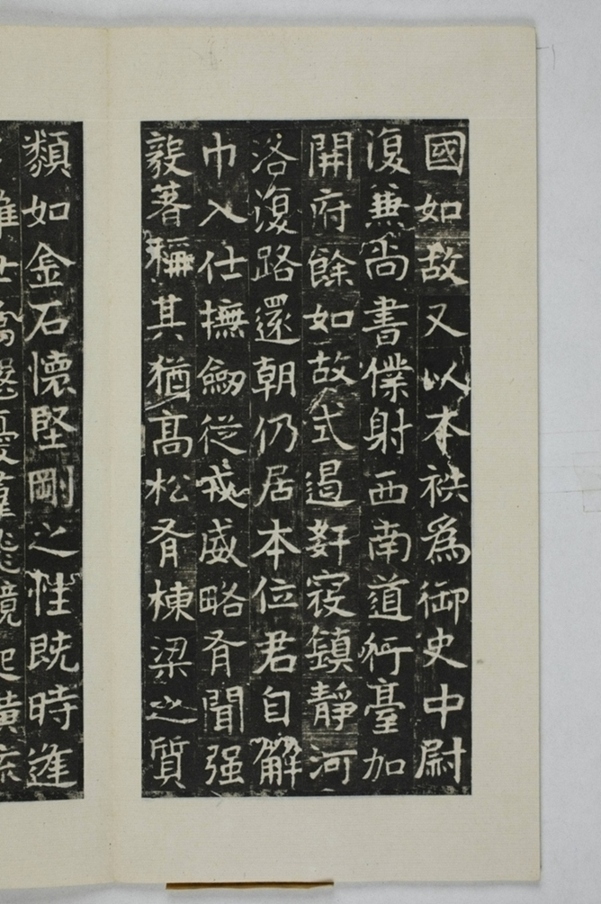 國如故又以本袟為御史中尉
復兼尚書僕射西南道行臺加
開府餘如故式遏姧寇鎮靜河
洛復路還朝仍居本位君自解
巾入仕撫劒從戎威略有聞强
毅著稱其猶高松有棟梁之質
類如金石懷堅剛之性既時逢